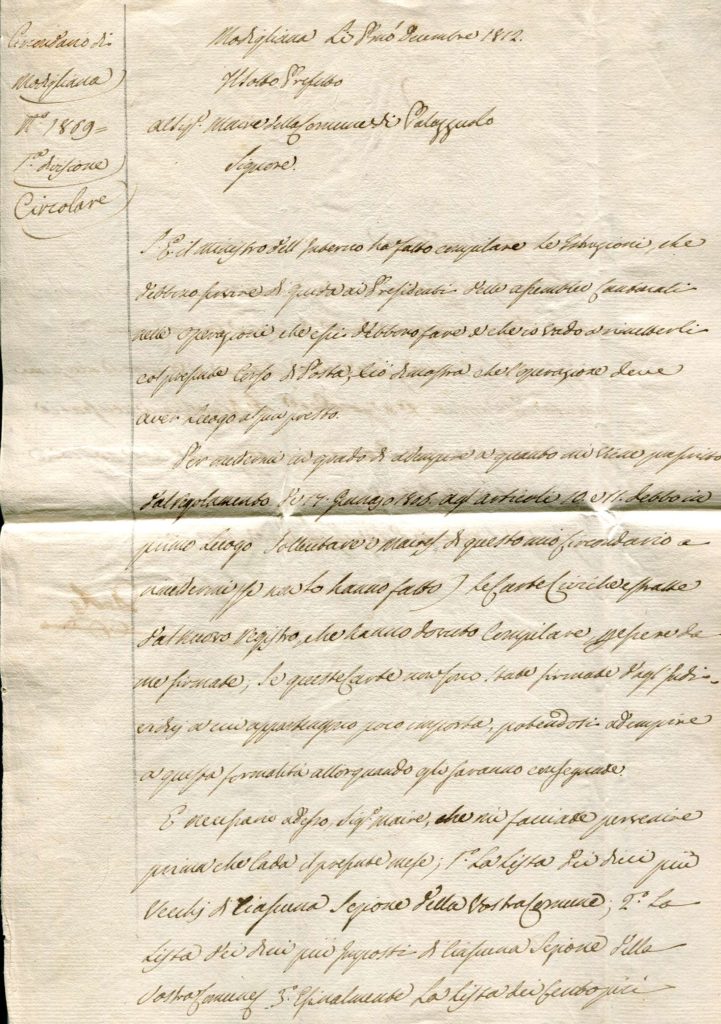 Circondario di
Modigliana
N.º 1869=
1.ª divisione
Circolare
Modigliana Li Decembre 1812.
Il Sotto Prefetto
al Sig.r Maire della Comune di Palazzuolo
Signore.
S. E. il ministro dell'Interno ha fatto compilare Le Istruzioni, che
debbono servire di guida ai Presidenti delle assemblee Cantonali
nelle operazioni, che essi debbono fare e che io vado a rimetterli
col presente Corso di Posta, Ciò dimostra che l'operazione deve
aver Luogo al più presto.
Per mettermi in grado di adempire a quanto mi viene
dal regolamento de 17. Gennajo 1806. agl'articoli 10. e 11. debbo in
primo Luogo Sollecitare i Maires, di questo mio Circondario a
rimettermi (se non lo hanno fatto) Le Carte Civiche estratte
dal nuovo registro, che hanno dovuto Compilare per essere da
me firmate; Se queste Carte non sono state firmate dagl'Indi=
vidui a cui appartengono poco importa, potendosi adempire
a questa formalità allorquando gli saranno consegnate.
È necessario adesso, Sig.r maire, che mi facciate pervenire
prima che Cada il presente mese; 1.º La Lista dei dieci più
Vecchj di Ciascuna Sezione della Vostra Comune; 2.º La
Lista dei dieci più Imposti di Ciascuna Sezione della
Vostra Comune 3.º E finalmente La Lista dei Cento più